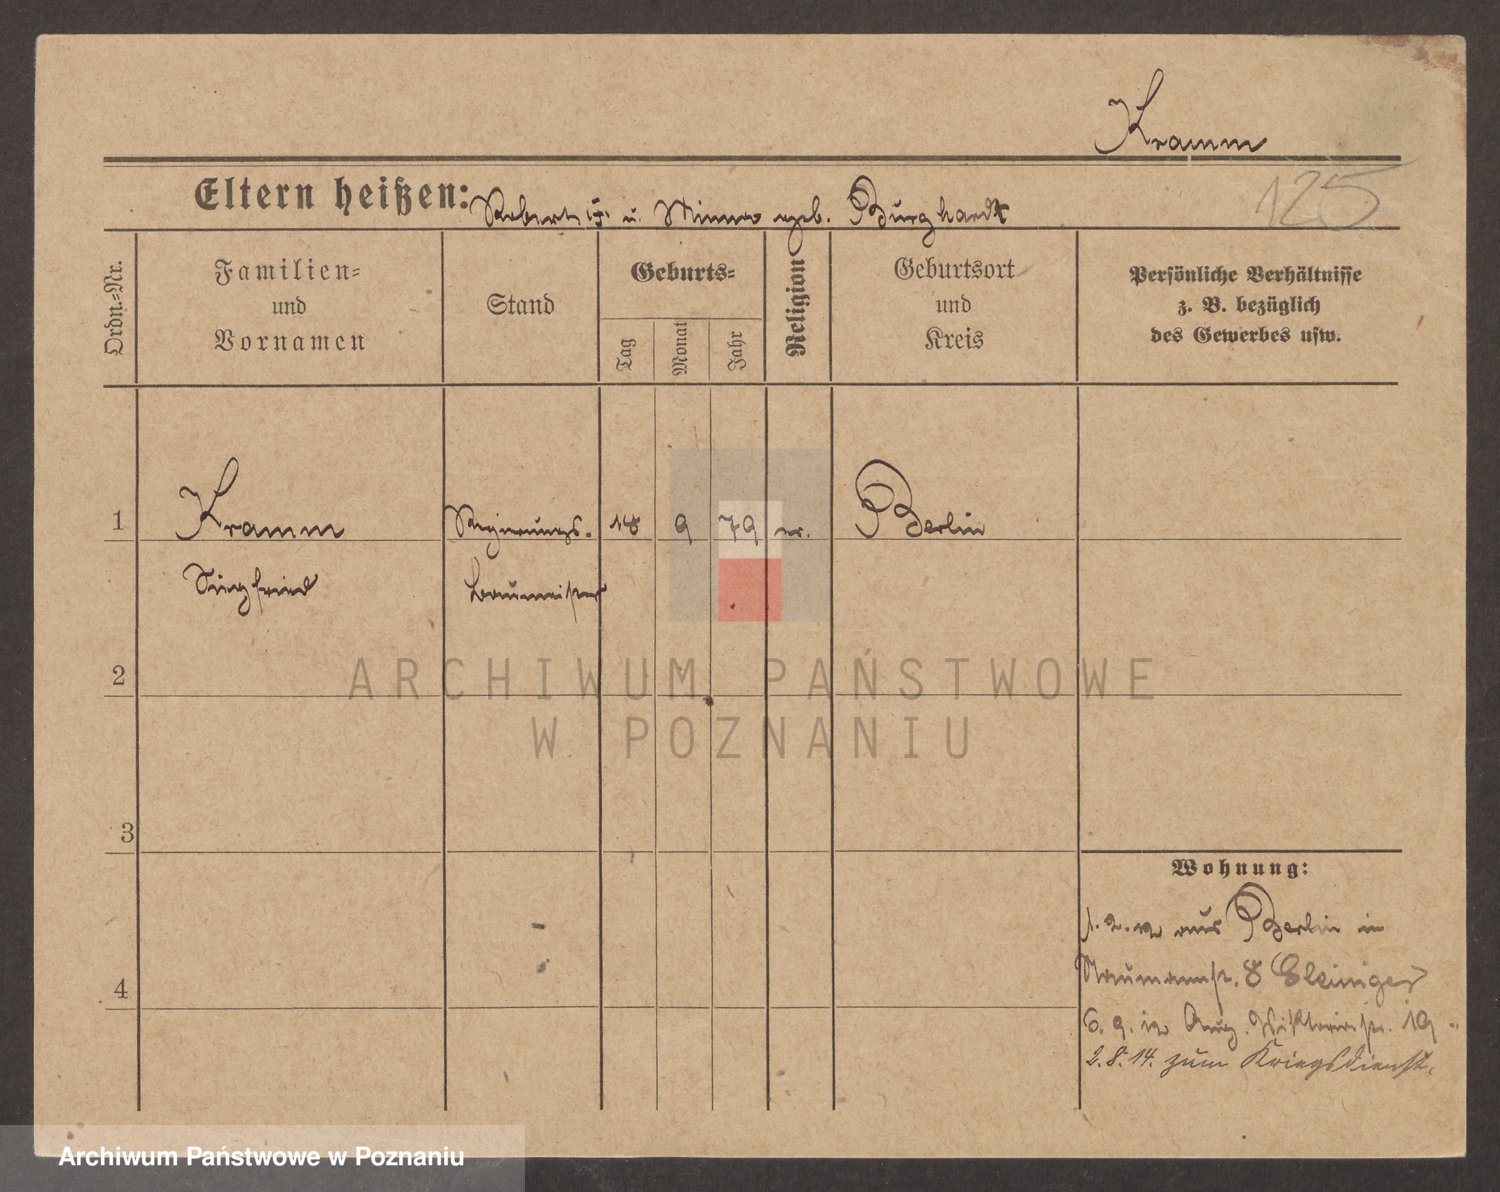 Kramm
125
Eltern heißen: Robert u. Minna geb. Burghardt
Ordn.-Nr.
Familien-
und
Vornamen
Stand
Geburts-
Tag
Monat
Jahr
Religion
Geburtsort
und
Kreis
Persönliche Verhältnisse
z. B. bezüglich
des Gewerbes usw.
1
Kramm
Regierungs-
18
9
79
ev.
Berlin
Siegfried
baumeister
2
ARCHIWUM PAŃSTWOWE
W POZNANIU
3
Wohnung:
1.2.12 aus Berlin in
Naumannstr. 8
4
6.9.12 Aug. Viktoriastr. 19
2.8.14. zum Kriegsdienst.
Archiwum Państwowe w Poznaniu